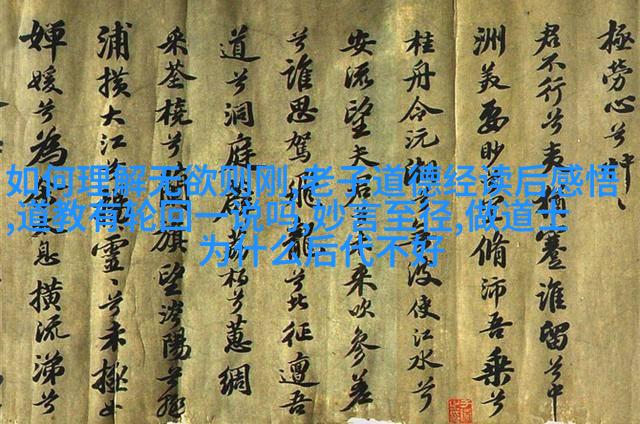 極勞心兮
君不行兮夷猶蹇誰留兮中
洲美要眇兮脩沛吾乘兮
桂舟令沅兮波使江水兮
安流望夫君未來吹參差
兮誰思駕飛龍兮北征邅吾
道兮洞庭薜荔柏兮蕙綢
采荃橈兮旗望涔陽兮
浦橫大江兮靈兮未極女
嬋媛兮為息橫流涕兮
如何理解无欲则刚,老子道德经读后感悟
,道教有轮回一说吗,妙言至径,做道士
为什么后代不好